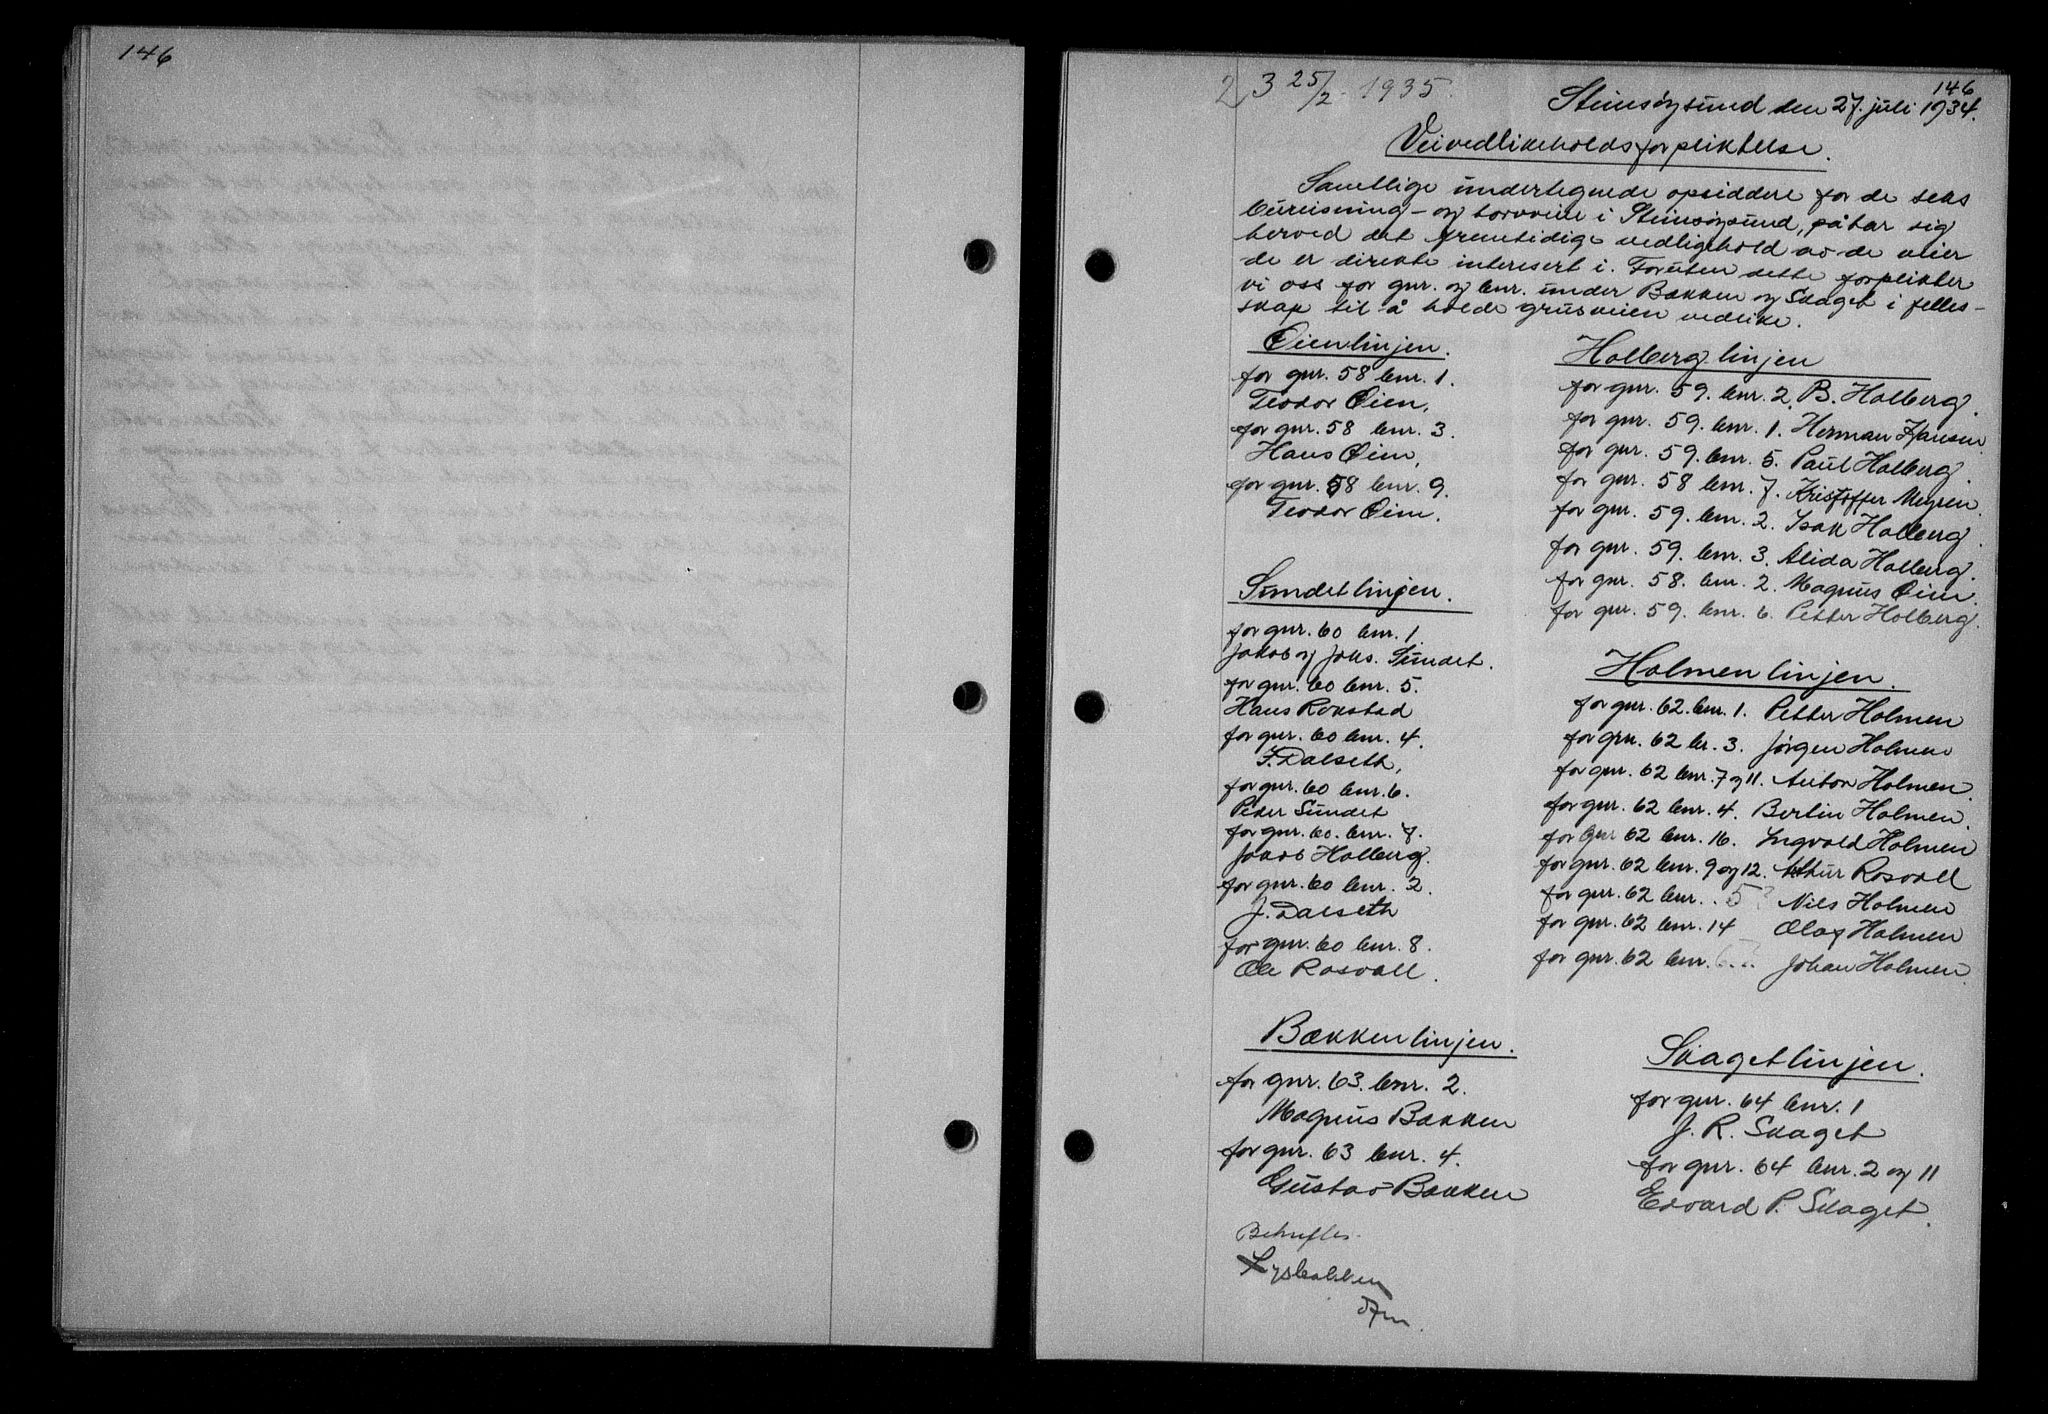 146
146
2 3 25/2 1935.
Steinsøysund den 27. juli 1934.
Veivedlikeholdsforpliktelse.
Samtlige undertegnede opsiddere for de seks
bureisning- og torvveie i Steinsøysund, påtar sig
herved det fremtidige vedligehold av de veier
de er direkte interesert i. Foruten dette forplikter
vi oss for gnr. og bnr. under Bækken og Skaget i felles-
skap til å holde grusveien vedlike.
Øienlinjen.
for gnr. 58 bnr. 1.
Teodor Øien,
for gnr. 58 bnr. 3.
Hans Øien,
for gnr. 58 bnr. 9.
Teodor Øien.
Sundetlinjen.
for gnr. 60 bnr. 1.
Jakob og Johs. Sundet.
for gnr. 60 bnr. 5.
Hans Rokstad
for gnr. 60 bnr. 4.
J. Dalseth,
for gnr. 60 bnr. 6.
Peder Sundet
for gnr. 60. bnr. 7.
Jakob Holberg.
for gnr. 60 bnr. 2.
J. Dalseth
for gnr. 60 bnr. 8.
Ole Rosvoll.
Bækkenlinjen.
for gnr. 63. bnr. 2.
Magnus Bækken
for gnr. 63 bnr. 4.
Gustav Bækken
Holberglinjen
for gnr. 59. bnr. 2. B. Holberg.
for gnr. 59. bnr. 1. Herman Hansen
for gnr. 59. bnr. 5. Paul Holberg.
for gnr. 58 bnr. 7. Kristoffer Myren.
for gnr. 59. bnr. 2. Isak Holberg.
for gnr. 59. bnr. 3. Alida Holberg.
for gnr. 58. bnr. 2. Magnus Øien.
for gnr. 59. bnr. 6. Petter Holberg.
Holmenlinjen.
for gnr. 62. bnr. 1. Petter Holmen
for grn. 62 br. 3. Jørgen Holmen
for gnr. 62 bnr. 7 og 11. Anton Holmen.
for gnr. 62 bnr. 4. Bertin Holmen.
for gnr 62 bnr. 16. Ingvald Holmen
for gnr. 62 bnr. 9 og 12. Arthur Rosvoll
for gnr. 62 bnr. .. 5? Nils Holmen
for gnr. 62 bnr. 14 Olaf Holmen
for gnr. 62 bnr. 6? Johan Holmen.
Skagetlinjen.
for gnr. 64 bnr. 1
J. R. Skaget
for gnr. 64 bnr. 2 og 11
Edvard P. Skaget.
Bekreftes.
Lysbakken